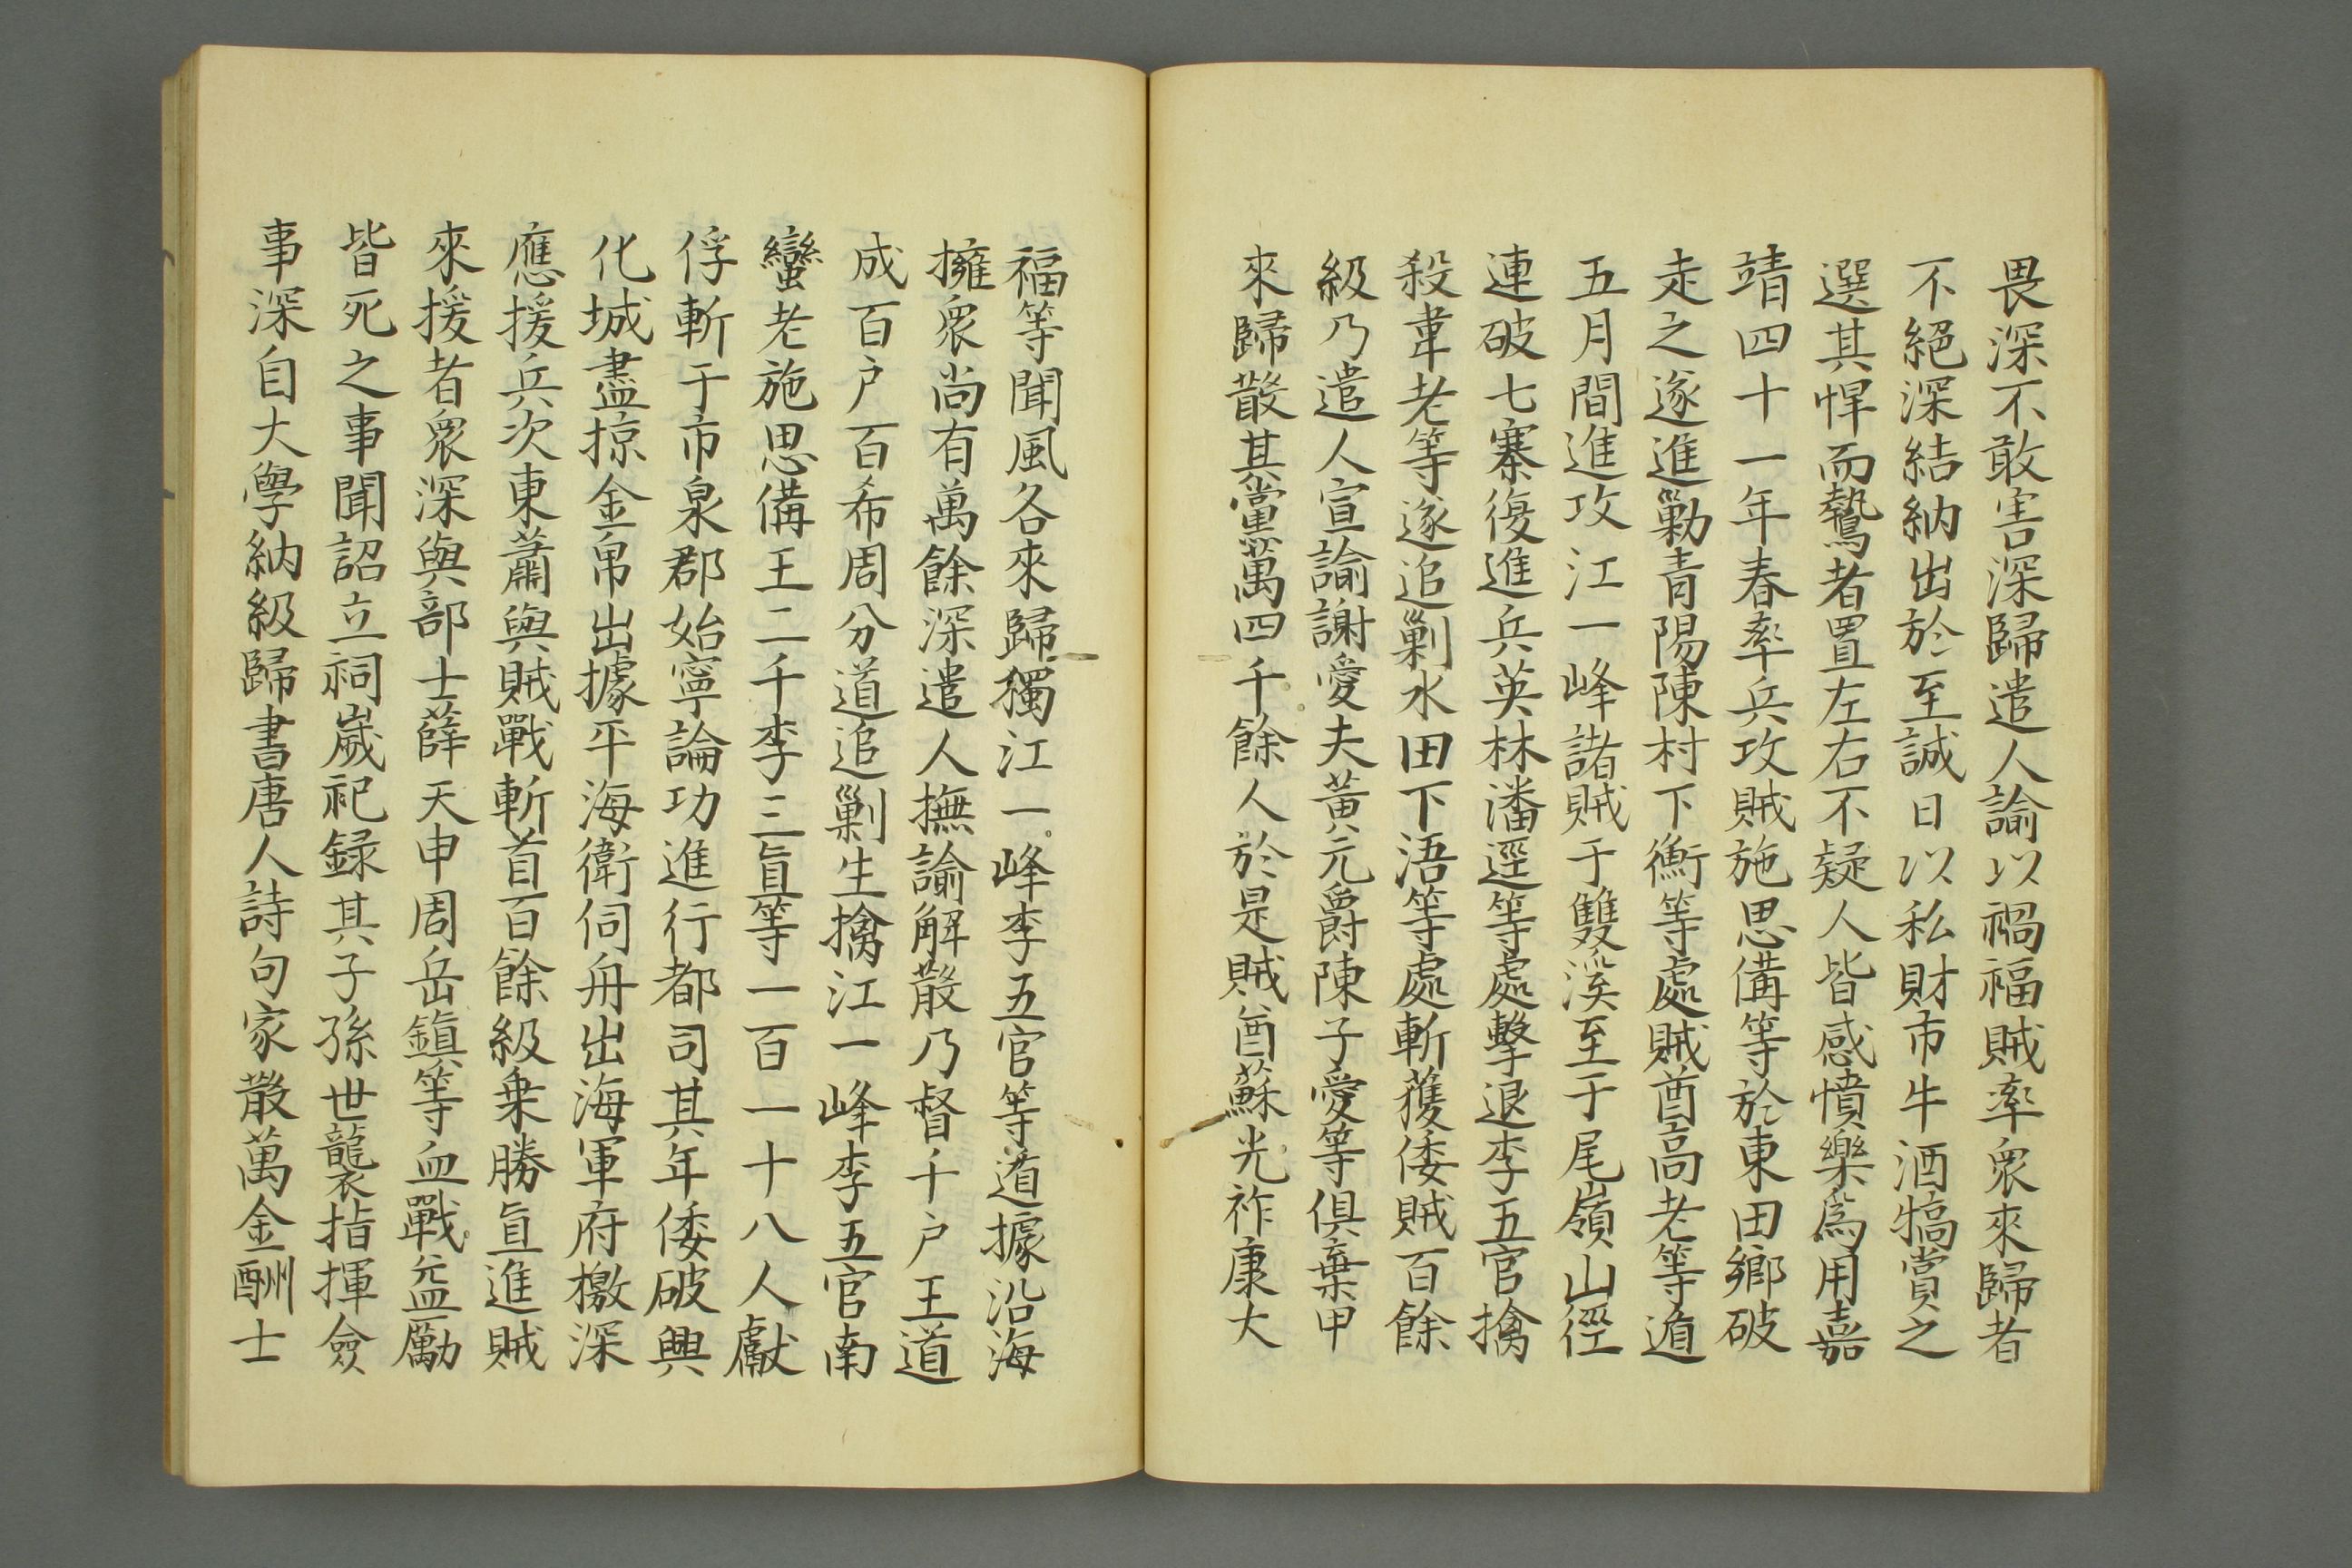 畏深不敢害深歸遣人諭以禍福賊率衆來歸者
不絕深結納出於至誠日以私財市牛酒犒賞之
選其悍而驁者置左右不疑人皆感憤樂爲用嘉
靖四十一年春率兵攻賊施思備等於東田鄉破
走之遂進勦青陽陳村下衡等處賊酋高老等遁
五月間進攻江一峰諸賊于雙溪至于尾嶺山徑
連破七寨復進兵英林潘逕等處擊退李五官擒
殺韋老等遂追剿水田下浯等處斬獲倭賊百餘
級乃遣人宣諭謝愛夫黃元爵陳子愛等俱棄甲
來歸散其黨萬四千餘人於是賊酋蘇光祚康大
福等聞風各來歸獨江一峰李五官等遁據沿海
擁衆尚有萬餘深遣人撫諭解散乃督千户王道
成百户百希周分道追剿生擒江一峰李五官南
蠻老施思備王二千李三直等一百一十八人獻
俘斬于市泉郡始寧論功進行都司其年倭破興
化城盡掠金帛出據平海衛伺舟出海軍府檄深
應援兵次東蕭與賊戰斬首百餘級乗勝直進賊
來援者衆深與部士薛天申周岳鎮等血戰益勵
皆死之事聞詔立祠嵗祀録其子孫世襲指揮僉
事深自大學納級歸書唐人詩句家散萬金酬士